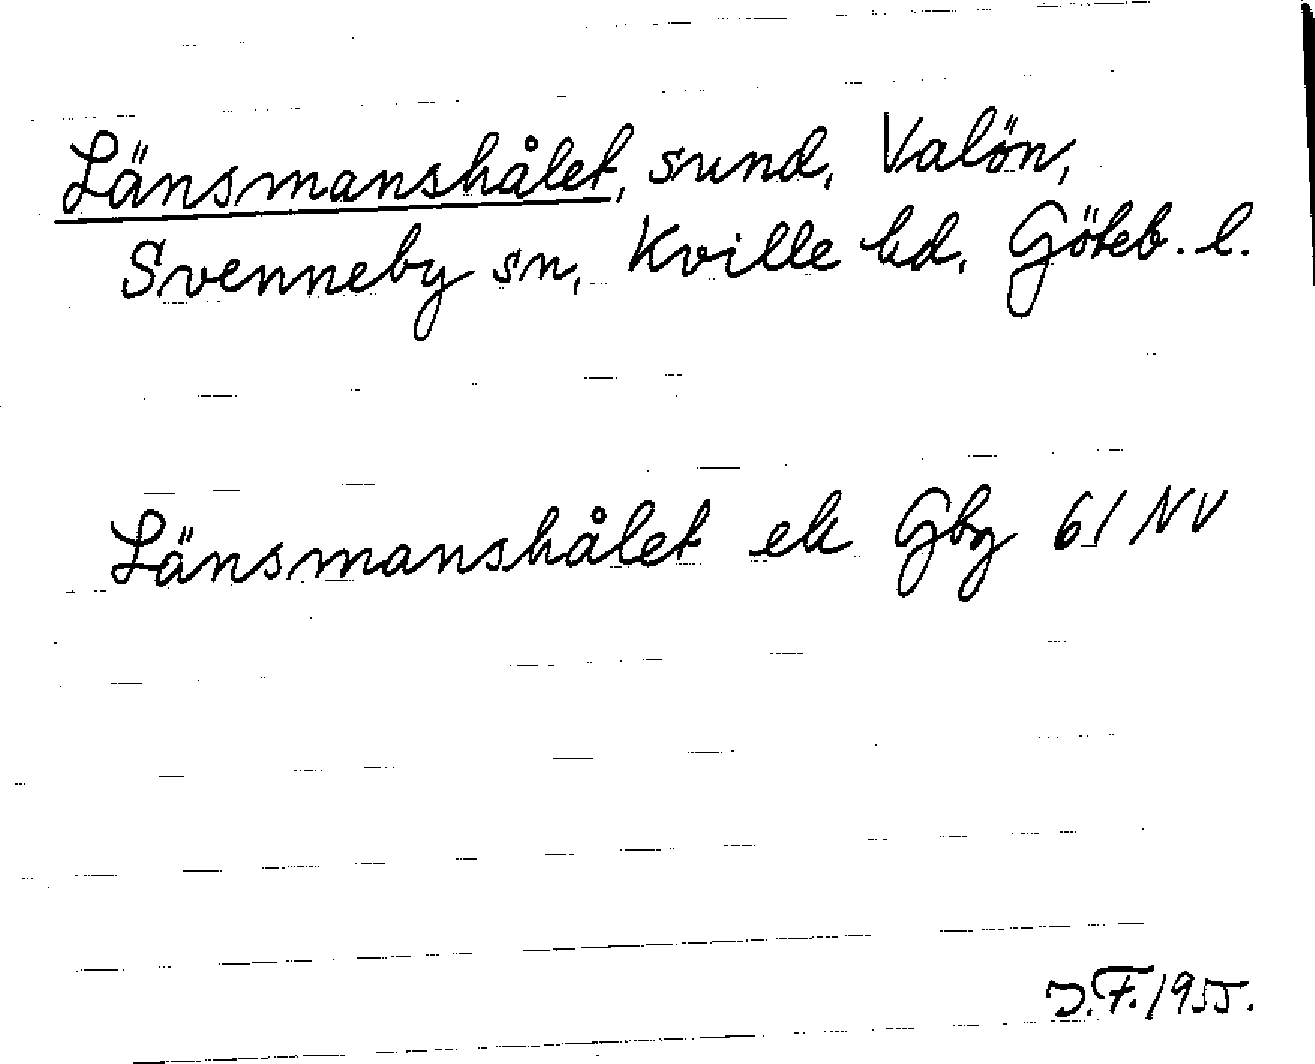 Länsmanshålet, sund, Valön,
Svenneby sn, Kville hd, Göteb. l.
Länsmanshålet ek Gbg 61 NV
J.F. 1955.